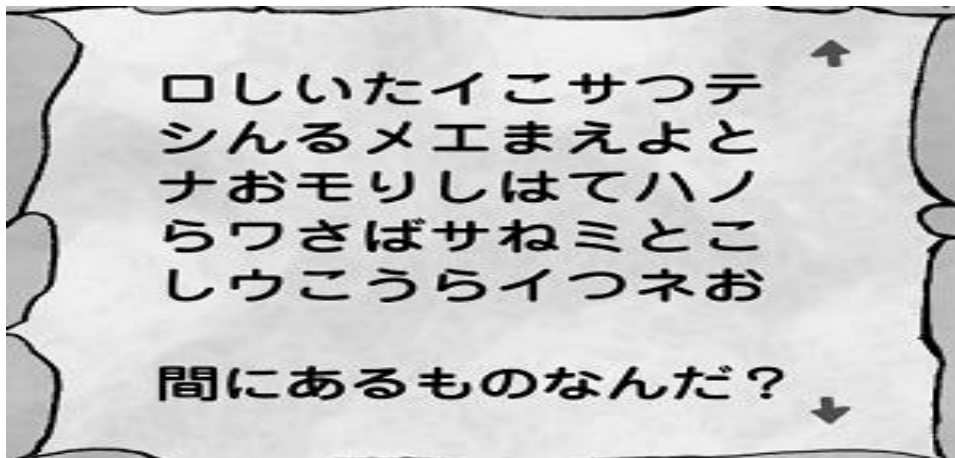 ロしいたイこサつテ
シんるメエまえよと
ナおモりしはてハノ
らワさばサねミとこ
しウこうらイつネお
間にあるものなんだ？